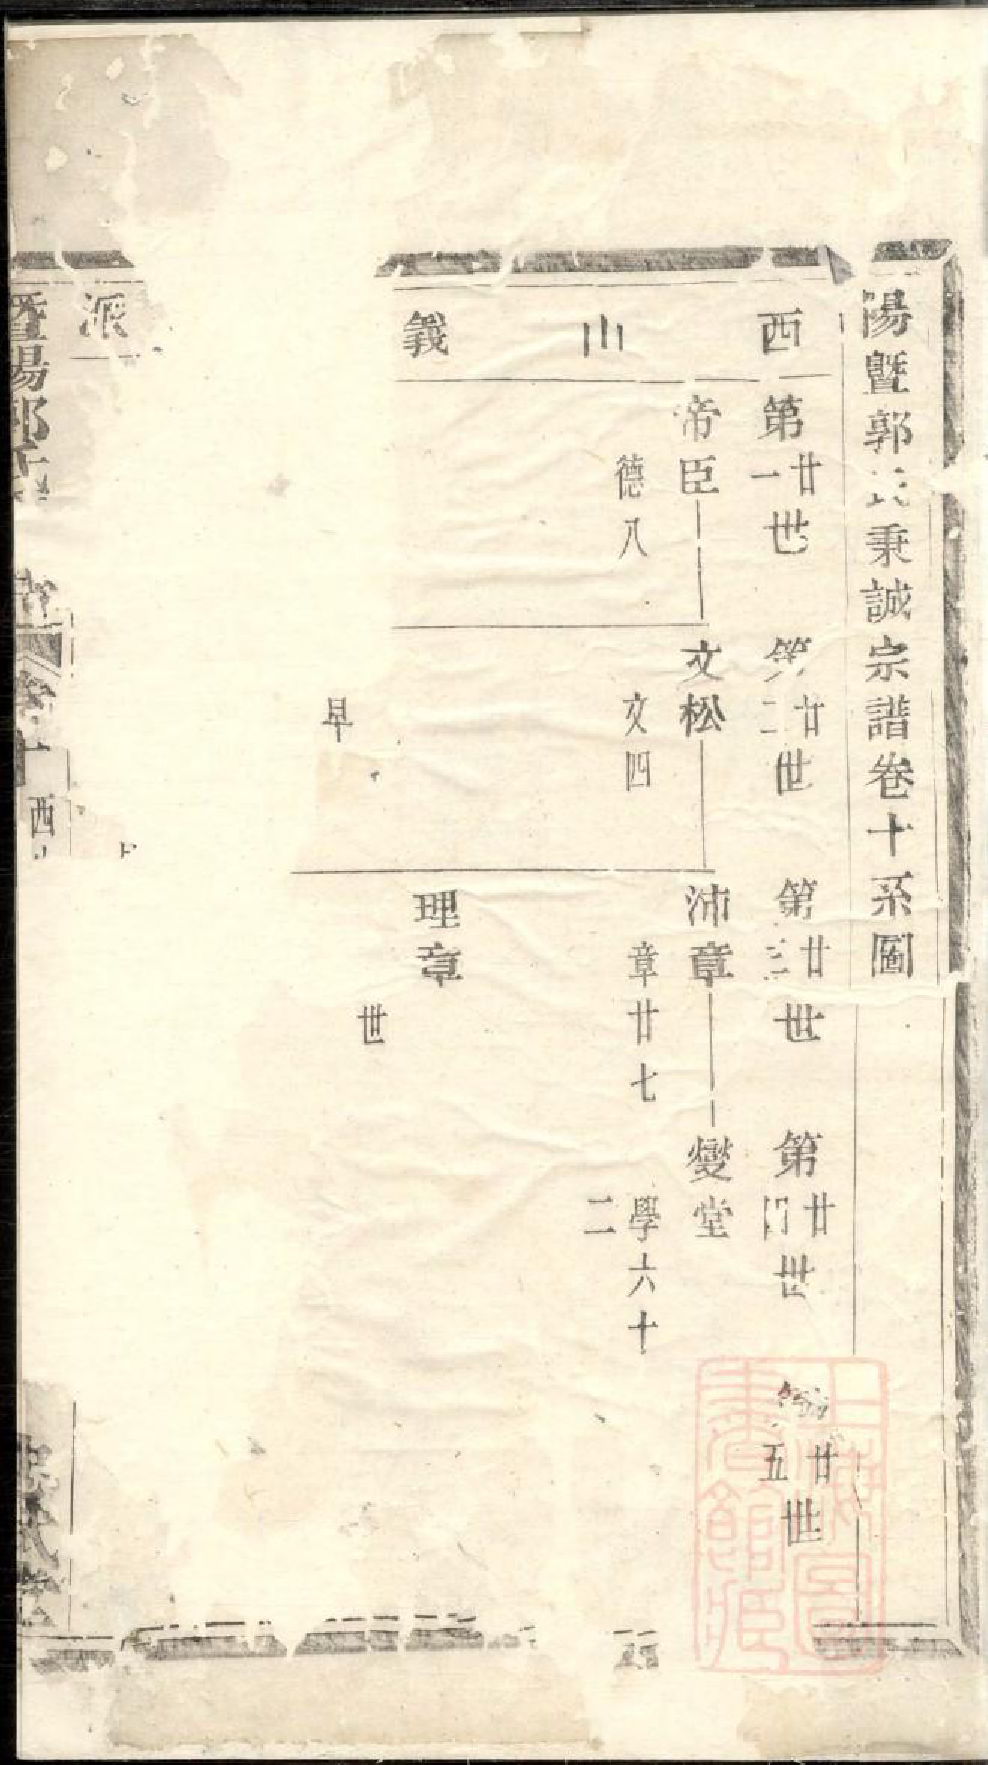 陽暨郭氏秉誠宗譜卷十系圖
西山義派
第廿一世 第廿二世 第廿三世 第廿四世 第廿五世
帝臣 文松 沛章 燮堂
德八 文四 章廿七 學六十二
理章
早 世
暨陽郭氏
卷十 西
上海圖書館藏